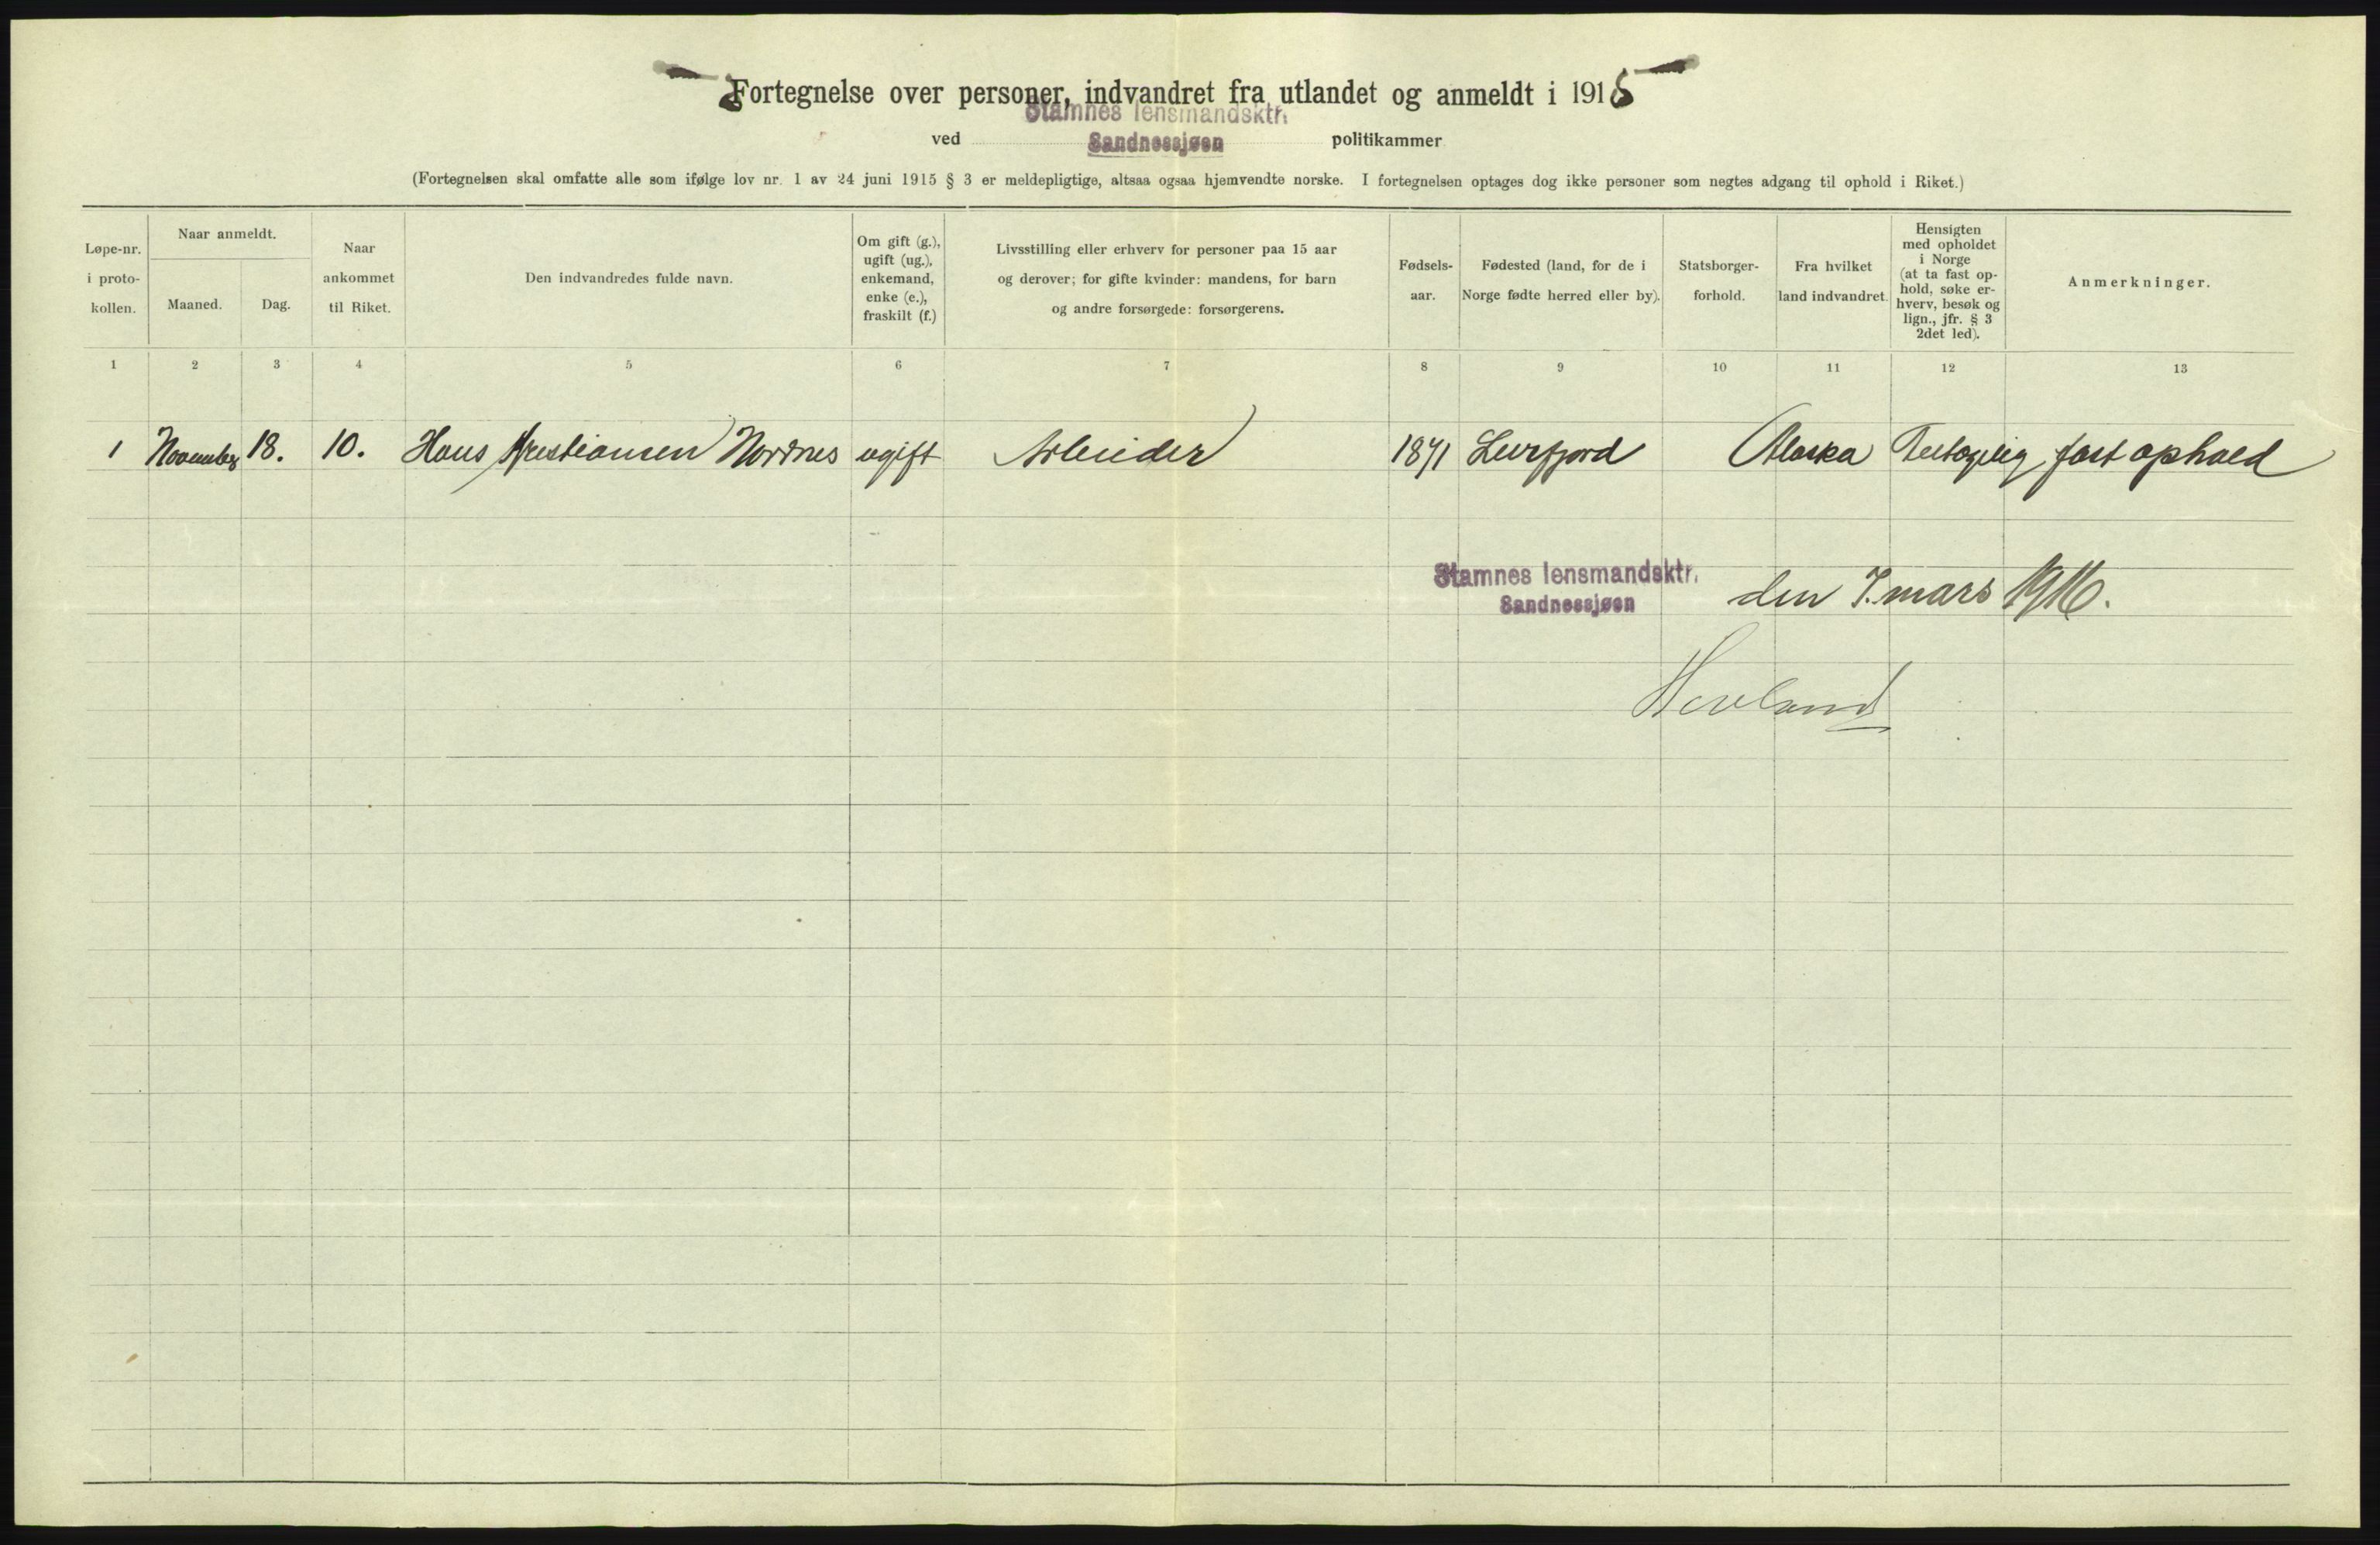 Fortegnelse over personer, indvandret fra utlandet og anmeldt i 1915
Stamnes lensmandsktr.
ved Sandnessjøen politikammer
(Fortegnelsen skal omfatte alle som ifølge lov nr. 1 av 24 juni 1915 § 3 er meldepligtige, altsaa ogsaa hjemvendte norske. I fortegnelsen optages dog ikke personer som negtes adgang til ophold i Riket.)
Løpe-nr.
i proto-
kollen.
Naar anmeldt.
Maaned.
Dag.
Naar
ankommet
til Riket.
Den indvandredes fulde navn.
Om gift (g.),
ugift (ug.),
enkemand,
enke (e.),
fraskilt (f.)
Livsstilling eller erhverv for personer paa 15 aar
og derover; for gifte kvinder: mandens, for barn
og andre forsørgede: forsørgerens.
Fødsels-
aar.
Fødested (land, for de i
Norge fødte herred eller by).
Statsborger-
forhold.
Fra hvilket
land indvandret.
Hensigten
med opholdet
i Norge
(at ta fast op-
hold, søke er-
hverv, besøk og
lign., jfr. § 3
2det led).
Anmerkninger.
1 2 3 4 5 6 7 8 9 10 11 12 13
1 November 18. 10. Hans Kristiansen Nordnes ugift Arbeider 1871 Leirfjord Alaska fast ophold
Stamnes lensmandsktr.
Sandnessjøen
den 7. mars 1916.
Hovland